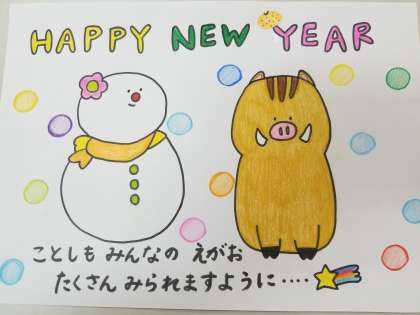 HAPPY NEW YEAR
ことしも みんなの えがお
たくさん みられますように・・・・